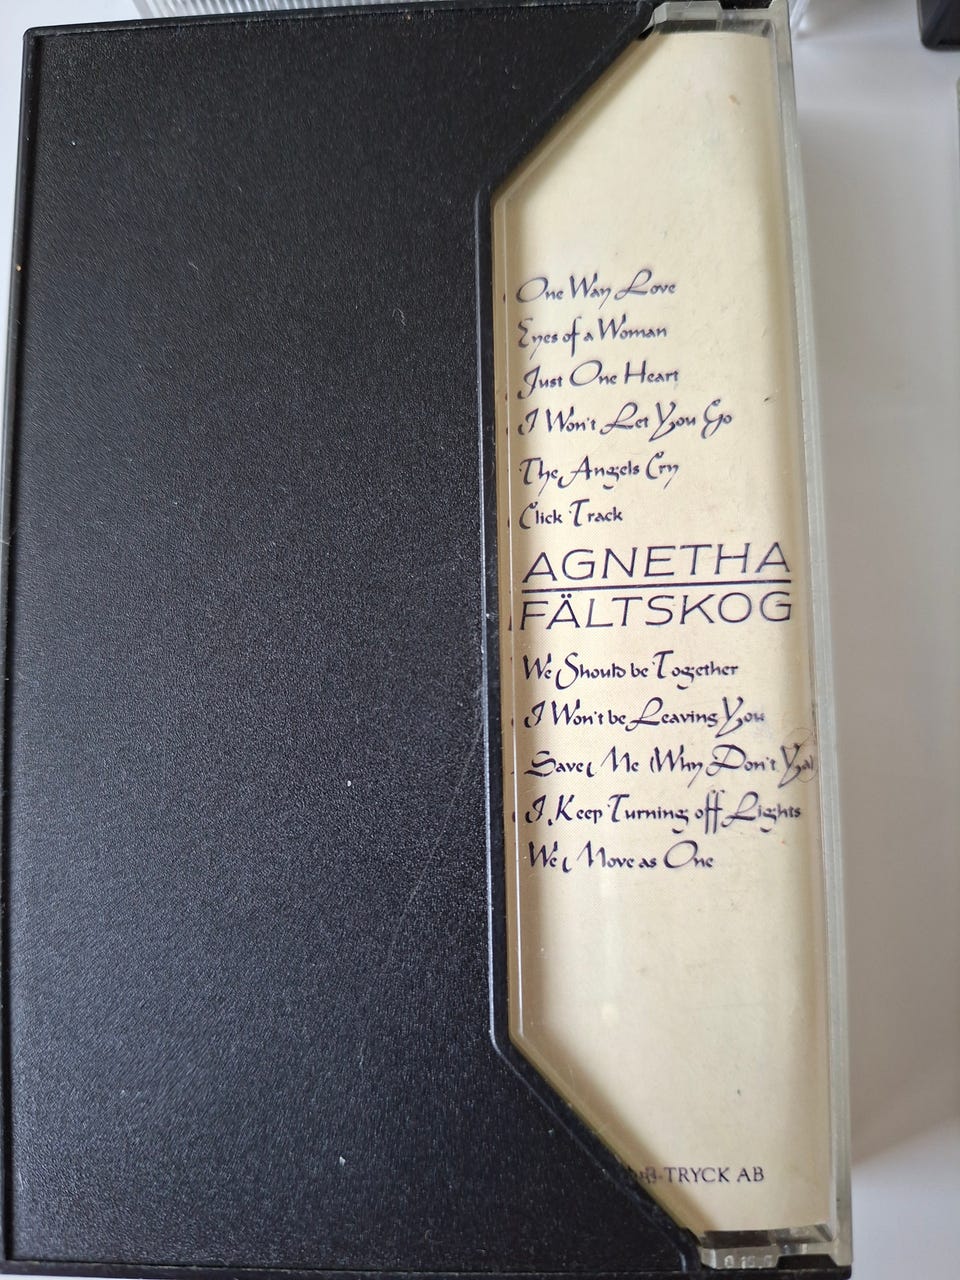 One Way Love
Eyes of a Woman
Just One Heart
I Won't Let You Go
The Angels Cry
Click Track
AGNETHA
FÄLTSKOG
We Should be Together
I Won't be Leaving You
Save Me (Why Don't Ya)
I Keep Turning off Lights
We Move as One
TRYCK AB